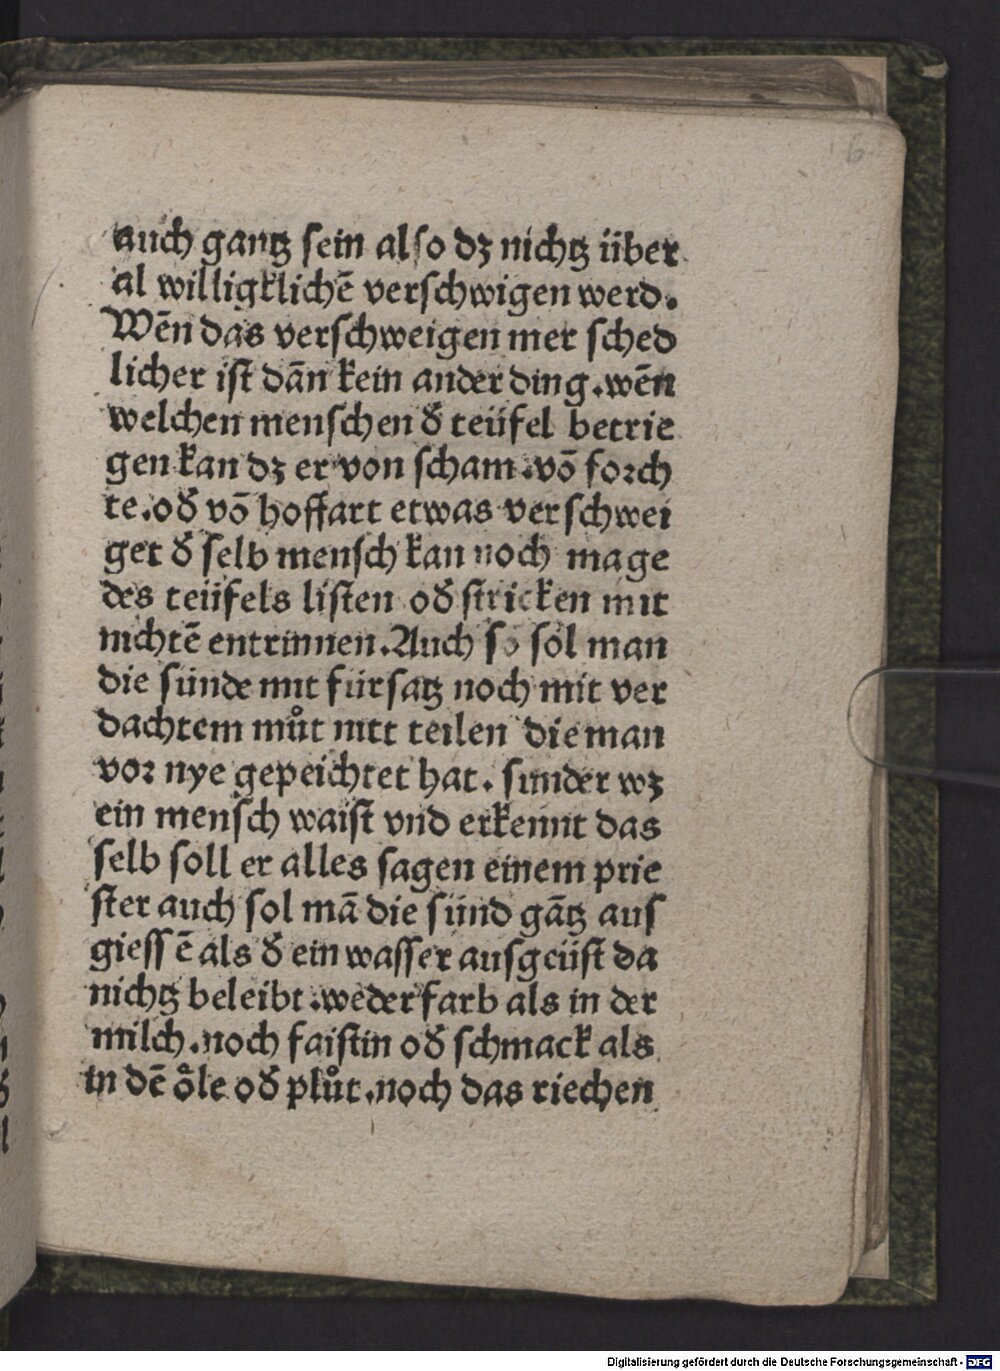 6
auch gantz sein also dz nichtz über
al willigklichē verschwigen werd.
Wēn das verschweigen mer sched
licher ist dān kein ander ding. wēn
welchen menschen đ teüfel betrie
gen kan dz er von scham. vō forch
te. ođ vō hoffart etwas verschwei
get đ selb mensch kan noch mage
des teüfels listen ođ stricken mit
nichtē entrinnen. Auch so sol man
die sünde mit fürsatz noch mit ver
dachtem můt nitt teilen die man
vor nye gepeichtet hat. sunder wz
ein mensch waist vnd erkennt das
selb soll er alles sagen einem prie
ster auch sol mā die sünd gātz aus
giessē als đ ein wasser ausgeüst da
nichtz beleibt. weder farb als in der
milch. noch faistin ođ schmack als
in dē öle ođ plůt. noch das riechen
Digitalisierung gefördert durch die Deutsche Forschungsgemeinschaft - DFG